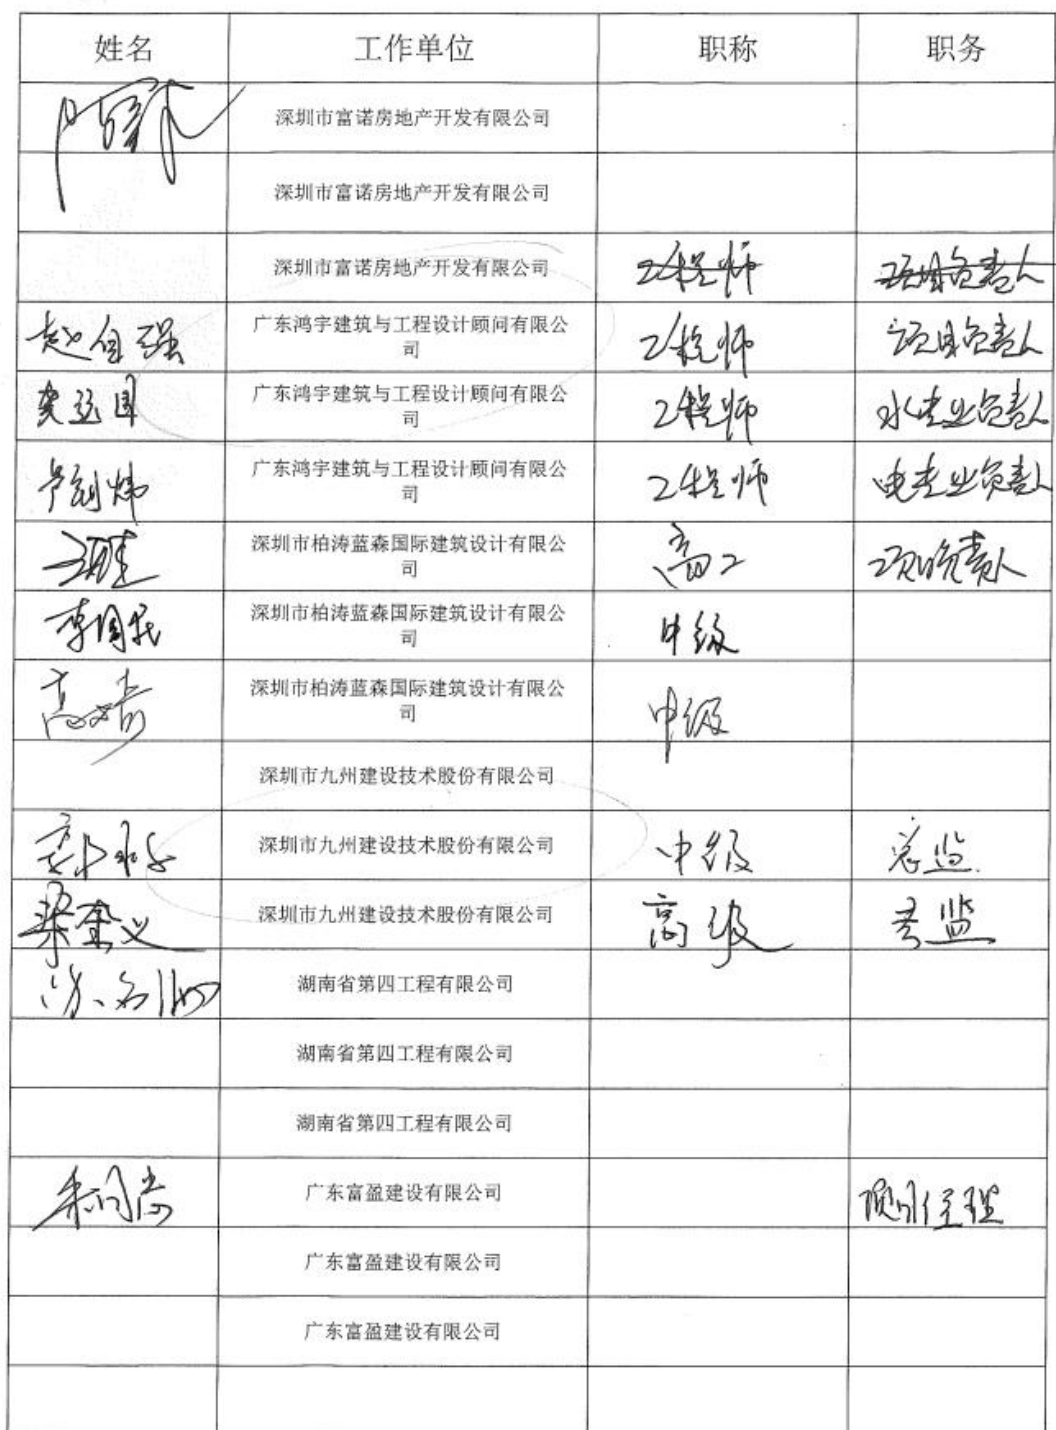 姓名 工作单位 职称 职务
深圳市富诺房地产开发有限公司
深圳市富诺房地产开发有限公司
深圳市富诺房地产开发有限公司 工程师 项目负责人
赵自强 广东鸿宇建筑与工程设计顾问有限公
司 工程师 项目负责人
龚远国 广东鸿宇建筑与工程设计顾问有限公
司 工程师 水专业负责人
广东鸿宇建筑与工程设计顾问有限公
司 工程师 电专业负责人
深圳市柏涛蓝森国际建筑设计有限公
司 高工 项目负责人
李国 深圳市柏涛蓝森国际建筑设计有限公
司 中级
高 深圳市柏涛蓝森国际建筑设计有限公
司 中级
深圳市九州建设技术股份有限公司
深圳市九州建设技术股份有限公司 中级 总监
梁金义 深圳市九州建设技术股份有限公司 高级 监
湖南省第四工程有限公司
湖南省第四工程有限公司
湖南省第四工程有限公司
广东富盈建设有限公司 项目经理
广东富盈建设有限公司
广东富盈建设有限公司